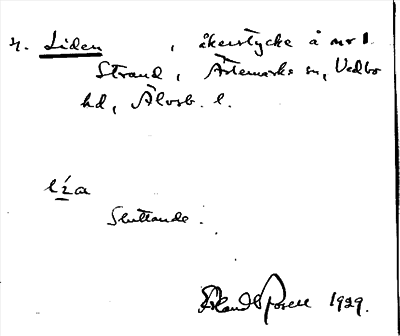 Liden , åkerstycke å nr 1.
Strand, Ärtemarks sn, Vedbo
hd, Älvsb. l.
lía
Sluttande.
1929.